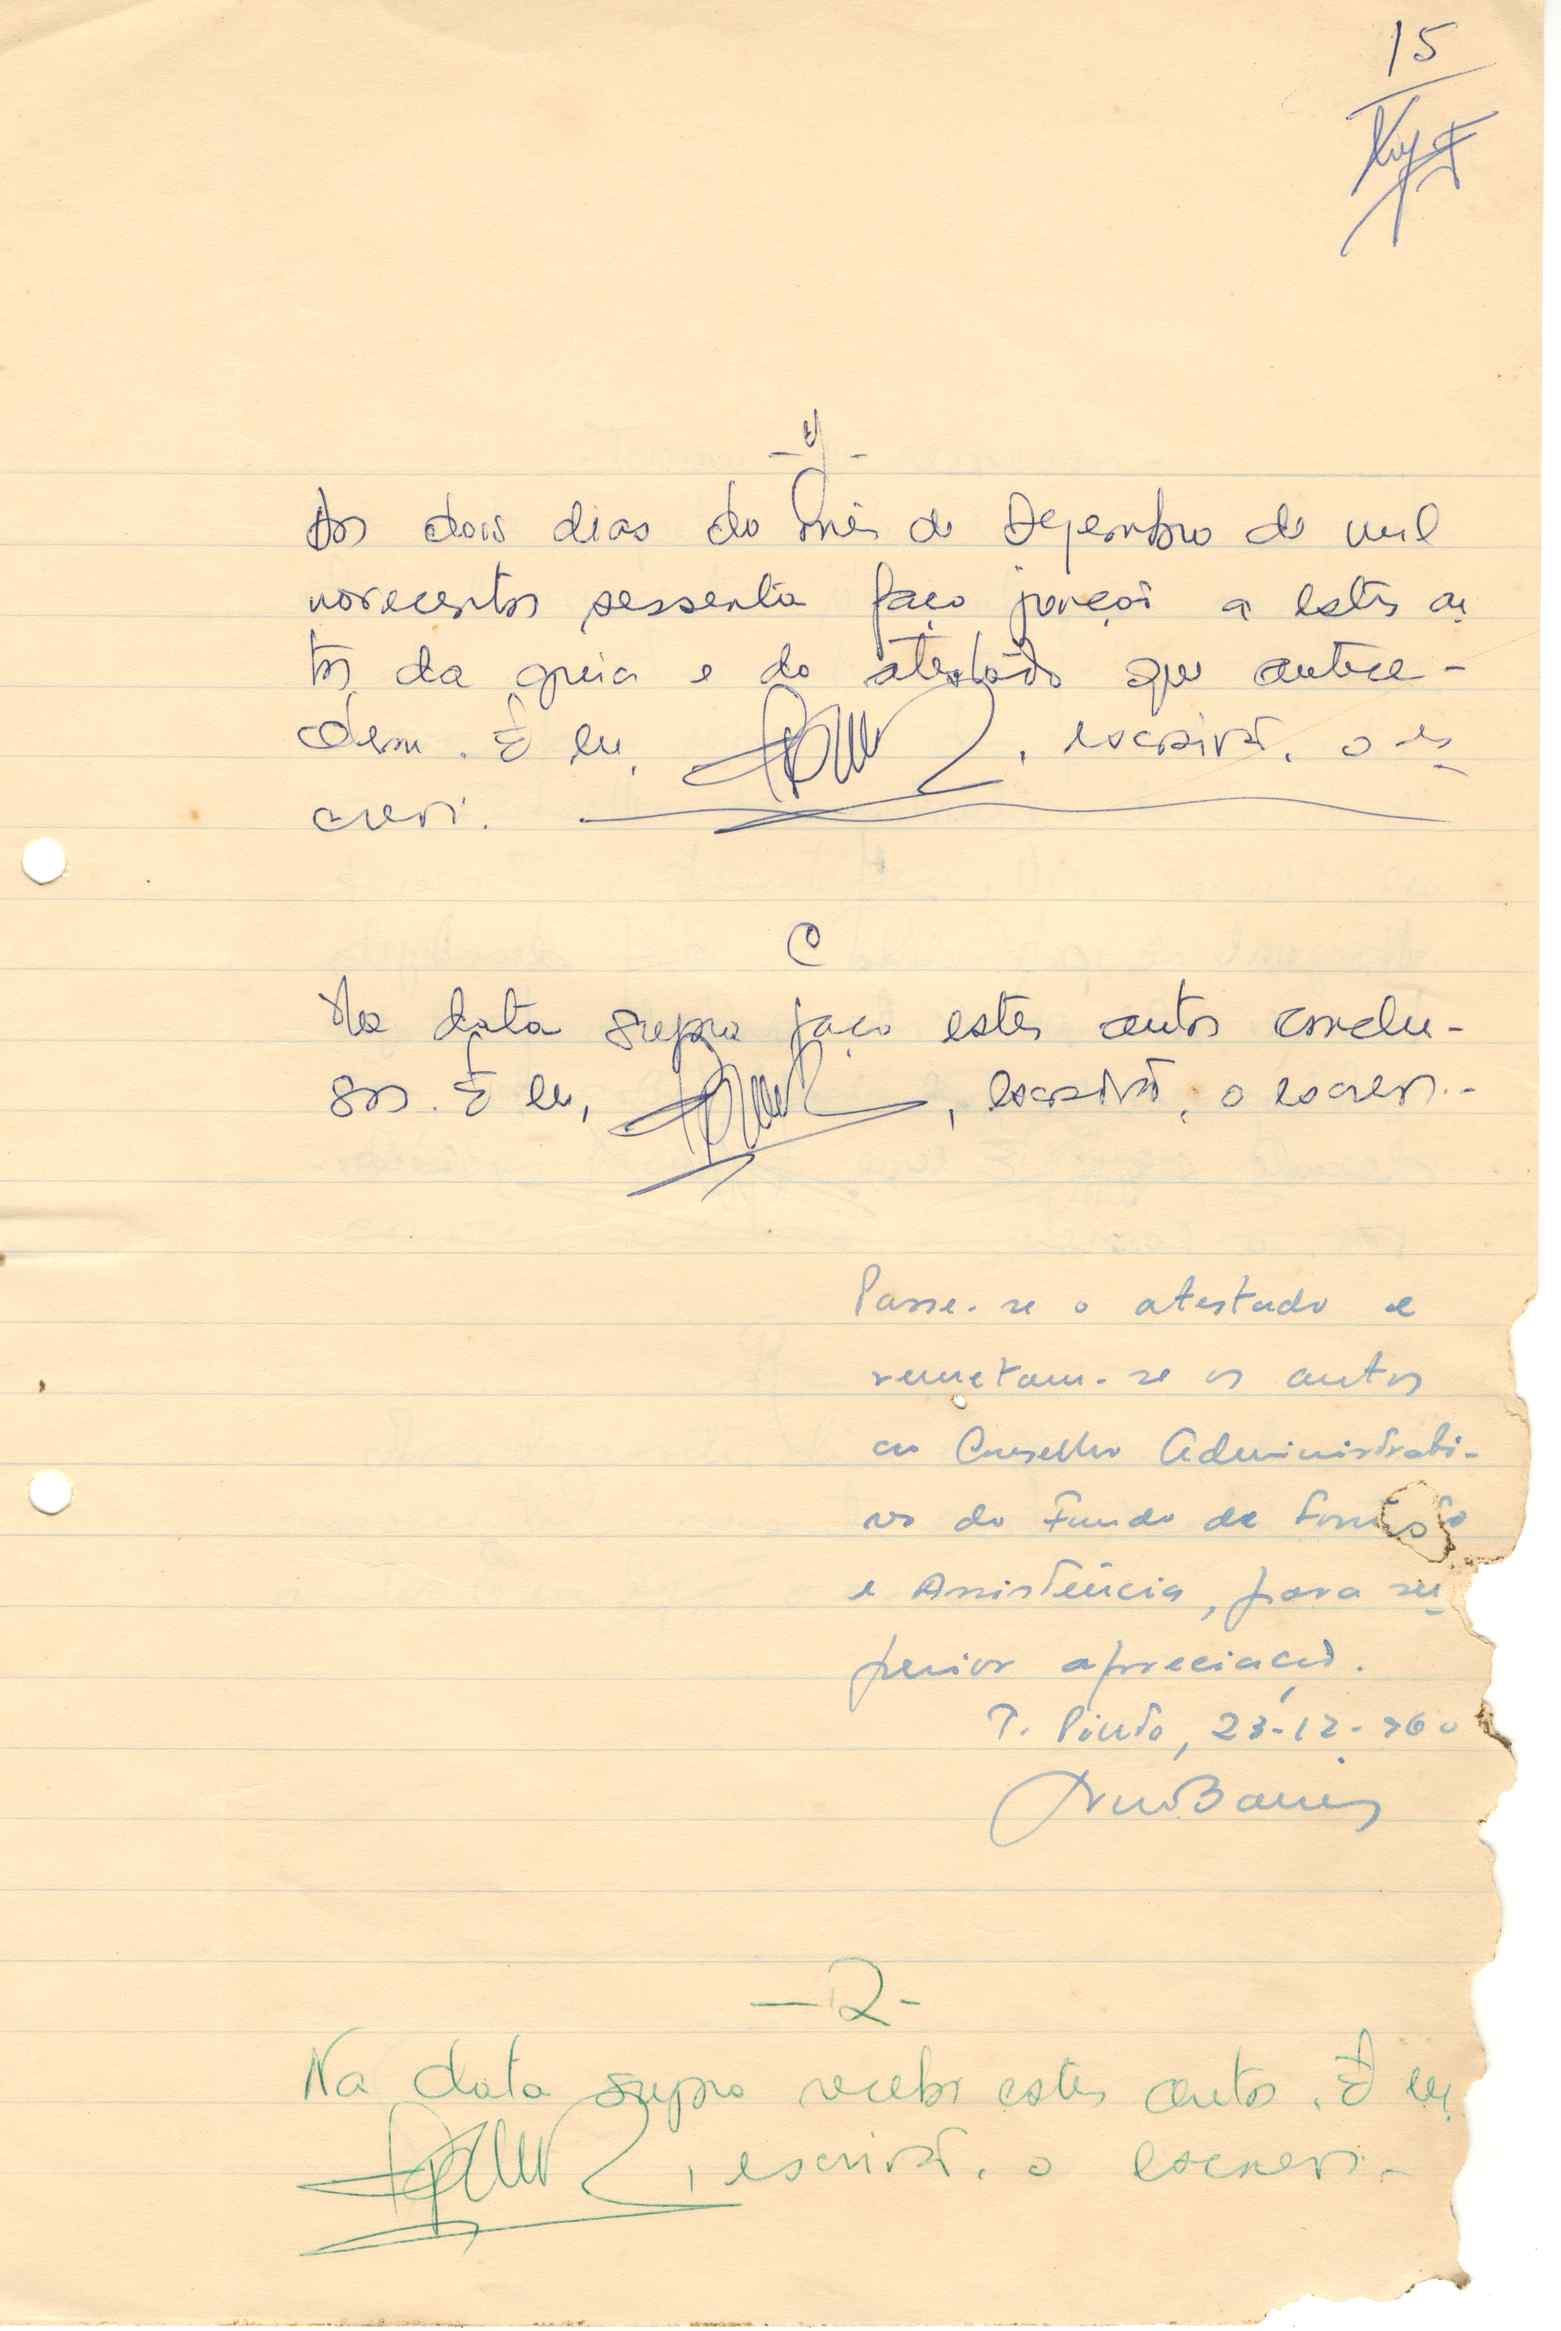 15
- J -
Aos dois dias do mês de Dezembro de mil
novecentos sessenta faço junção a estes au-
tos da guia e do atestado que antece-
dem. E eu, , escrivão, o es-
crevi.
C
Na data supra faço estes autos conclu-
sos. E eu, , escrivão, o escrevi.-
Passe-se o atestado e
remetam-se os autos
ao Conselho Administrati-
vo do Fundo de Fomento
e Assistência, para su-
perior apreciação.
T. Pinto, 23-12-960
- R -
Na data supra recebi estes autos. E eu,
, escrivão, o escrevi.-